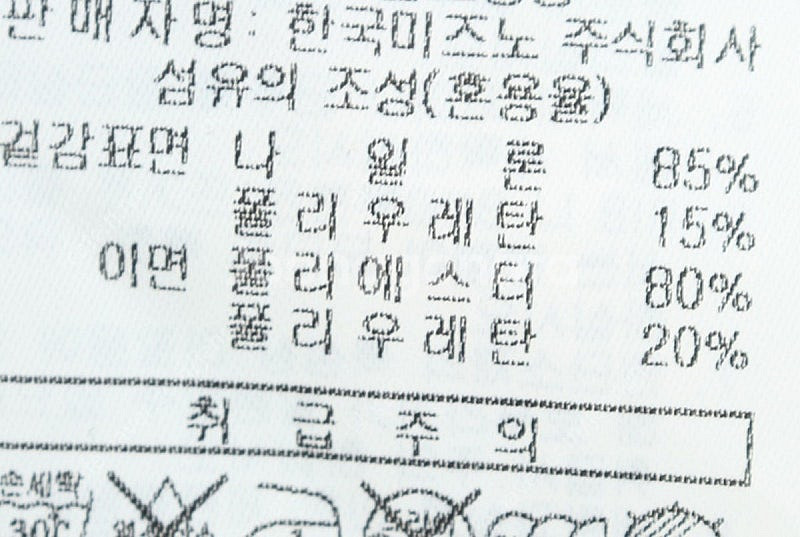 판매자명: 한국미즈노 주식회사
섬유의 조성(혼용율)
겉감표면 나일론 85%
폴리우레탄 15%
이면 폴리에스터 80%
폴리우레탄 20%
취급주의
손세탁
30℃